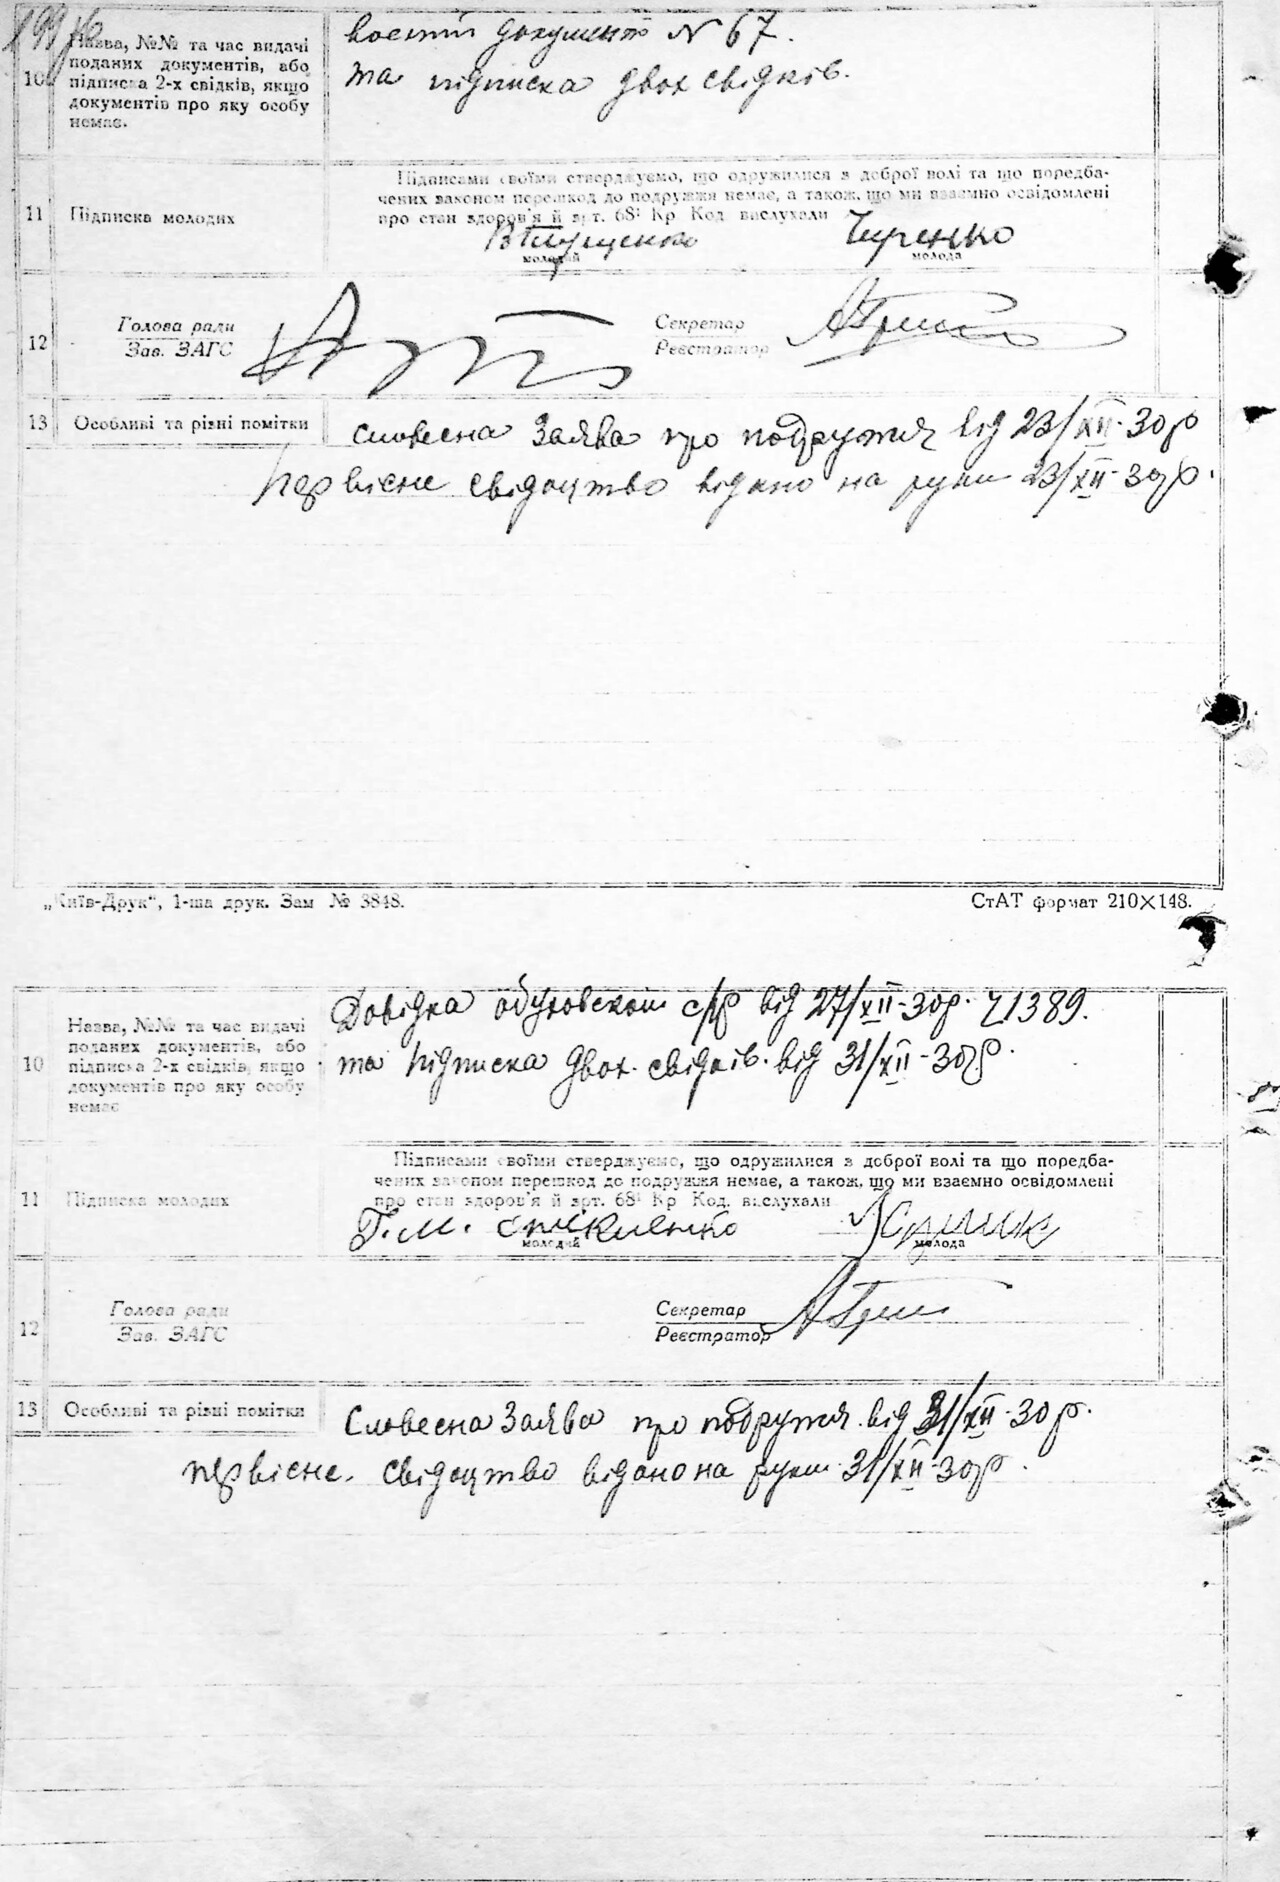 199
10 Назва, №№ та час видачі
поданих документів, або
підписка 2-х свідків, якщо
документів про яку особу
немає.
воєнии документ N 67.
та підписка двох свідків.
11 Підписка молодих
Підписами своїми стверджуємо, що одружилися з доброї волі та що передба-
чених законом перешкод до подружжя немає, а також, що ми взаємно освідомлені
про стан здоров'я й арт. 68¹ Кр Код вислухали
молодий
Чиренко
молода
12 Голова ради
Зав. ЗАГС
Секретар
Реєстратор
13 Особливі та різні помітки
словесна Заява про подружжя від 23/XII-30 р
первісне свідоцтво відано на руки 23/XII-30р.
„Київ-Друк“, 1-ша друк. Зам № 3848.
СтАТ формат 210×148.
10 Назва, №№ та час видачі
поданих документів, або
підписка 2-х свідків, якщо
документів про яку особу
немає
Довідка обуховскои с/р від 27/XII-30р. Ч1389.
та підписка двох свідків. від 31/XII-30р.
11 Підписка молодих
Підписами своїми стверджуємо, що одружилися з доброї волі та що передба-
чених законом перешкод до подружжя немає, а також, що ми взаємно освідомлені
про стан здоров'я й арт. 68¹ Кр Код. вислухали
Г. М.
молодий
молода
12 Голова ради
Зав. ЗАГС
Секретар
Реєстратор
13 Особливі та різні помітки
Словесна Заява про подружжя від 31/XII-30 р.
первісне. свідоцтво відано на руки 31/XII-30р.